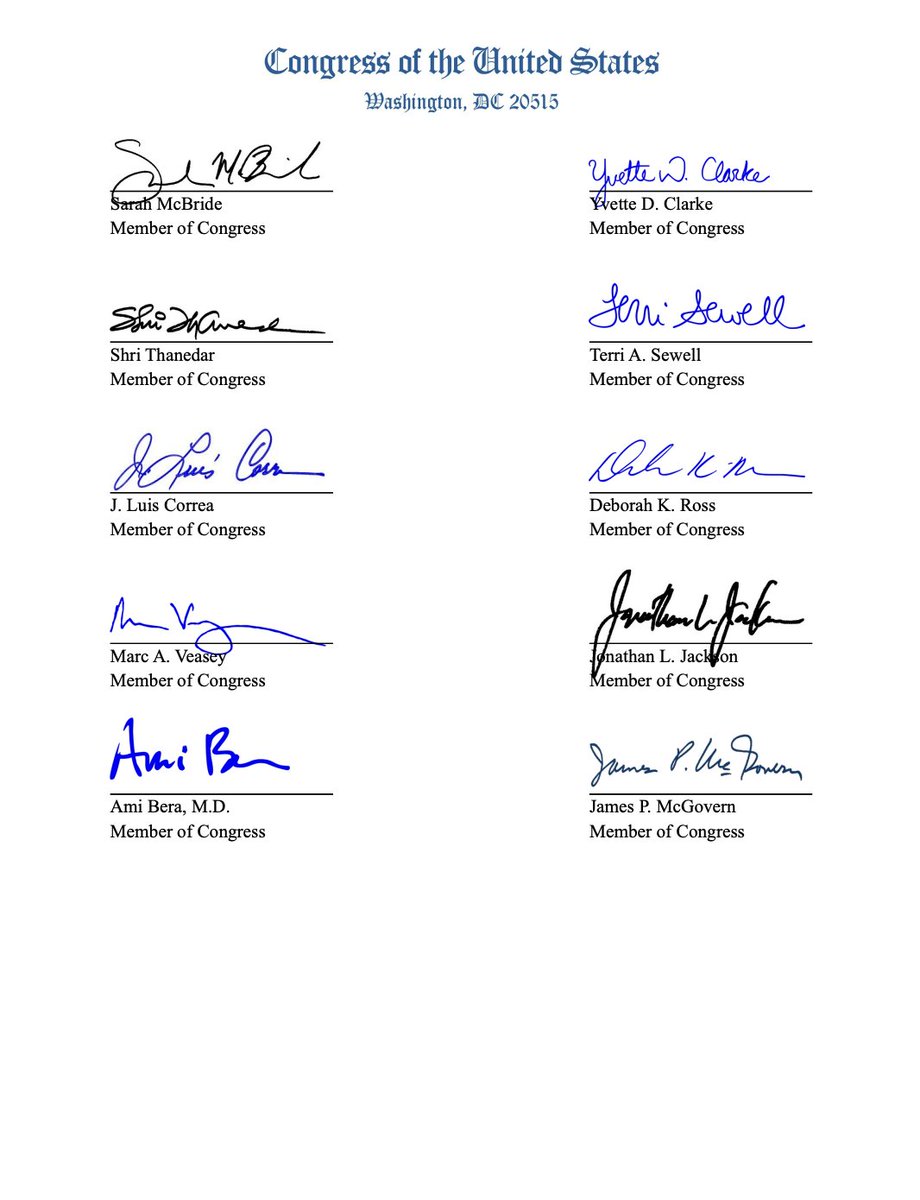 Congress of the United States
Washington, DC 20515
Sarah McBride
Yvette D. Clarke
Sarah McBride
Yvette D. Clarke
Member of Congress
Member of Congress
Shri Thanedar
Terri Sewell
Shri Thanedar
Terri A. Sewell
Member of Congress
Member of Congress
J. Luis Correa
J. Luis Correa
Deborah K. Ross
Member of Congress
Member of Congress
Jonathan L. Jackson
Marc A. Veasey
Jonathan L. Jackson
Member of Congress
Member of Congress
Ami Bera
James P. McGovern
Ami Bera, M.D.
James P. McGovern
Member of Congress
Member of Congress